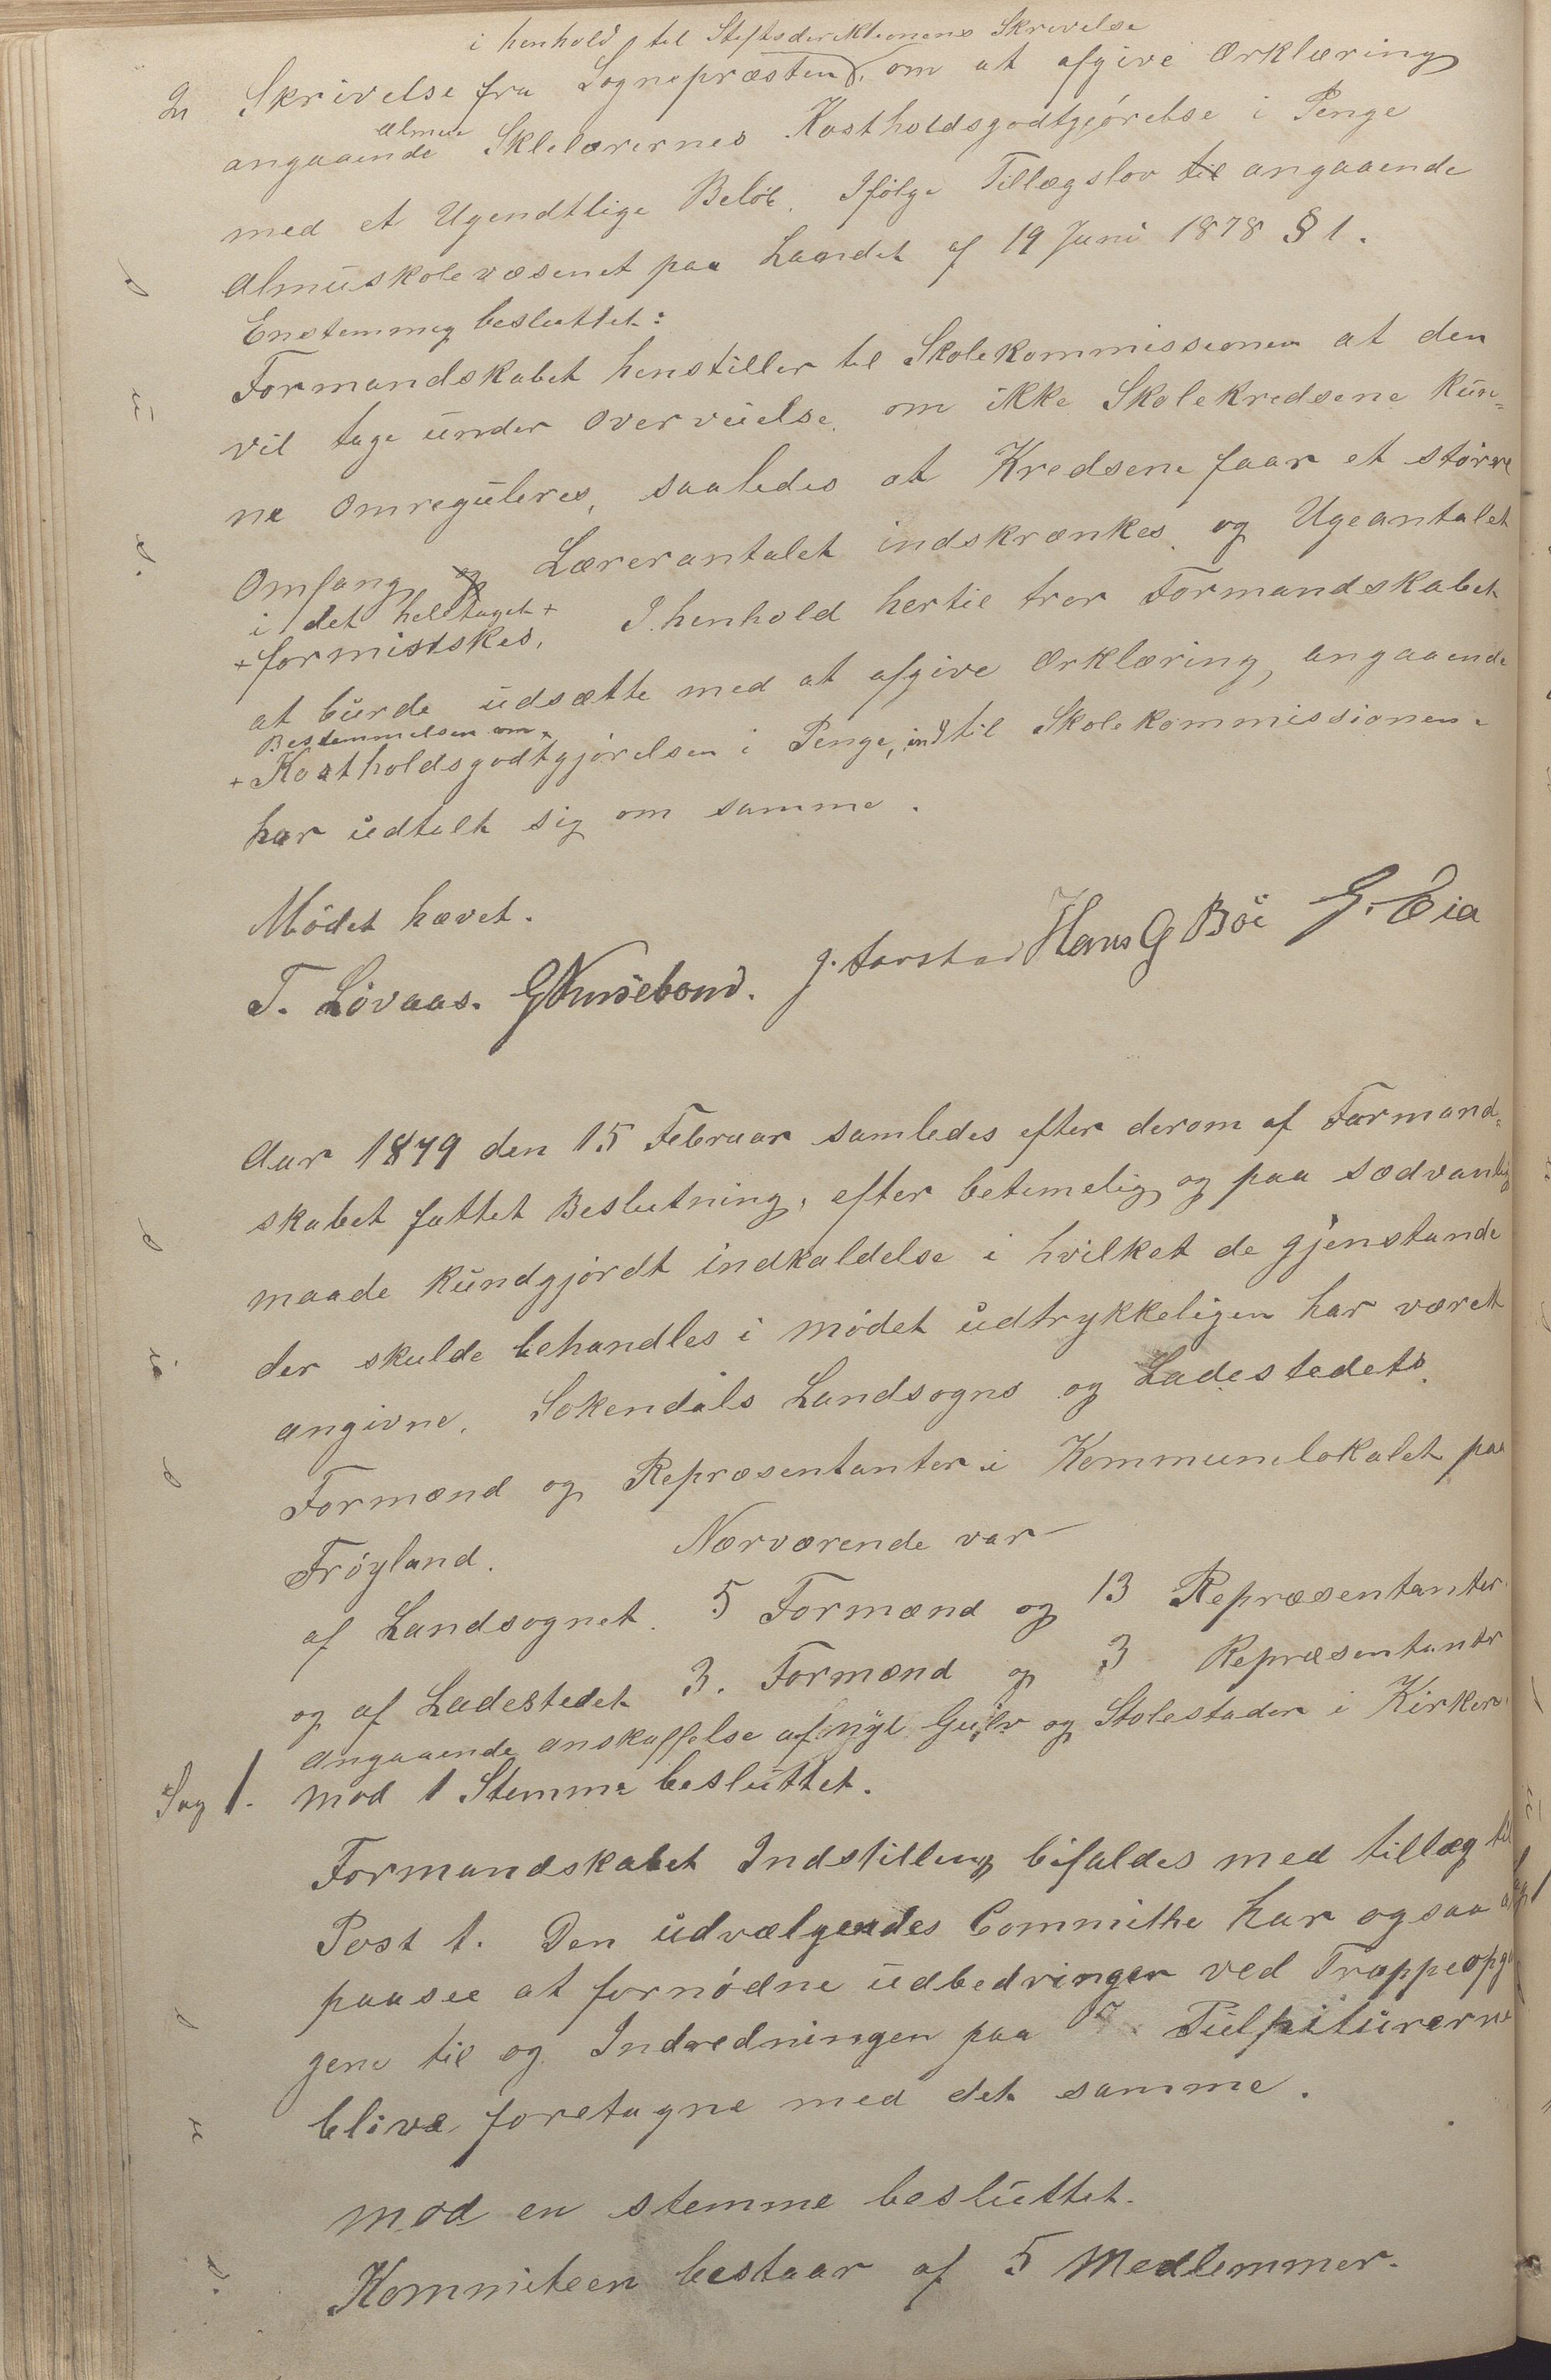 i henhold til Stiftsdirektionens Skrivelse
2 Skrivelse fra Sognepræsten, om at afgive Erklæring
Almue
angaaende Sklelærernes Kostholdsgodtgjörelse i Penge
med et Ugendtlige Belöb. Ifölge Tillægslov til angaaende
Almuskolevæsenet paa Landet af 19 Juni 1878 § 1.
Enstemmig besluttet:
Formandskabet henstiller til Skolekommissionen at den
vil tage under overveielse, om ikke Skolekredsene kun=
ne omreguleres, saaledes at Kredsene faar et större
Omfang og Lærerantalet indskrænkes og Ugeantalet
i det heletaget +
+ formistskes. I henhold hertil tror Formandskabet
at burde udsætte med at afgive Erklæring, angaaende
Bestemmelsen om +
+ Kostholdsgodtgjörelsen i Penge, indtil Skolekommissionen
har udtalt sig om samme.
Mödet hævet.
T. Lövaas. J. Aarstad Hans G Böe G. Eia
Aar 1879 den 15 Februar samledes efter derom af Formand=
skabet fattet Beslutning, efter betimelig og paa sædvanlig
maade kundgjordt indkaldelse i hvilket de gjenstande
der skulde behandles i mödet udtrykkeligen har værett
angivne. Sokendals Landsogns og Ladestedets
Formænd og Repræsentanter i Kommunelokalet paa
Fröyland. Nærværende var
af Landsognet. 5 Formænd og 13 Repræsentanter
og af Ladestedet 3. Formænd og 3 Repræsentanter
angaaende anskaffelse af nyt Gulv og Stolestader i Kirken
Sag 1. mod 1 Stemme besluttet.
Formandskabet Indstilling bifaldes med tillæg til
Post 1. Den udvælgendes Committe har ogsaa at
paasee at fornödne udbedringer ved Trappeopgan
gene til og Indredningen paa Pulpiturerne
blive foretagne med det samme.
mod en stemme besluttet.
Kommiteen bestaar af 5 Medlemmer.